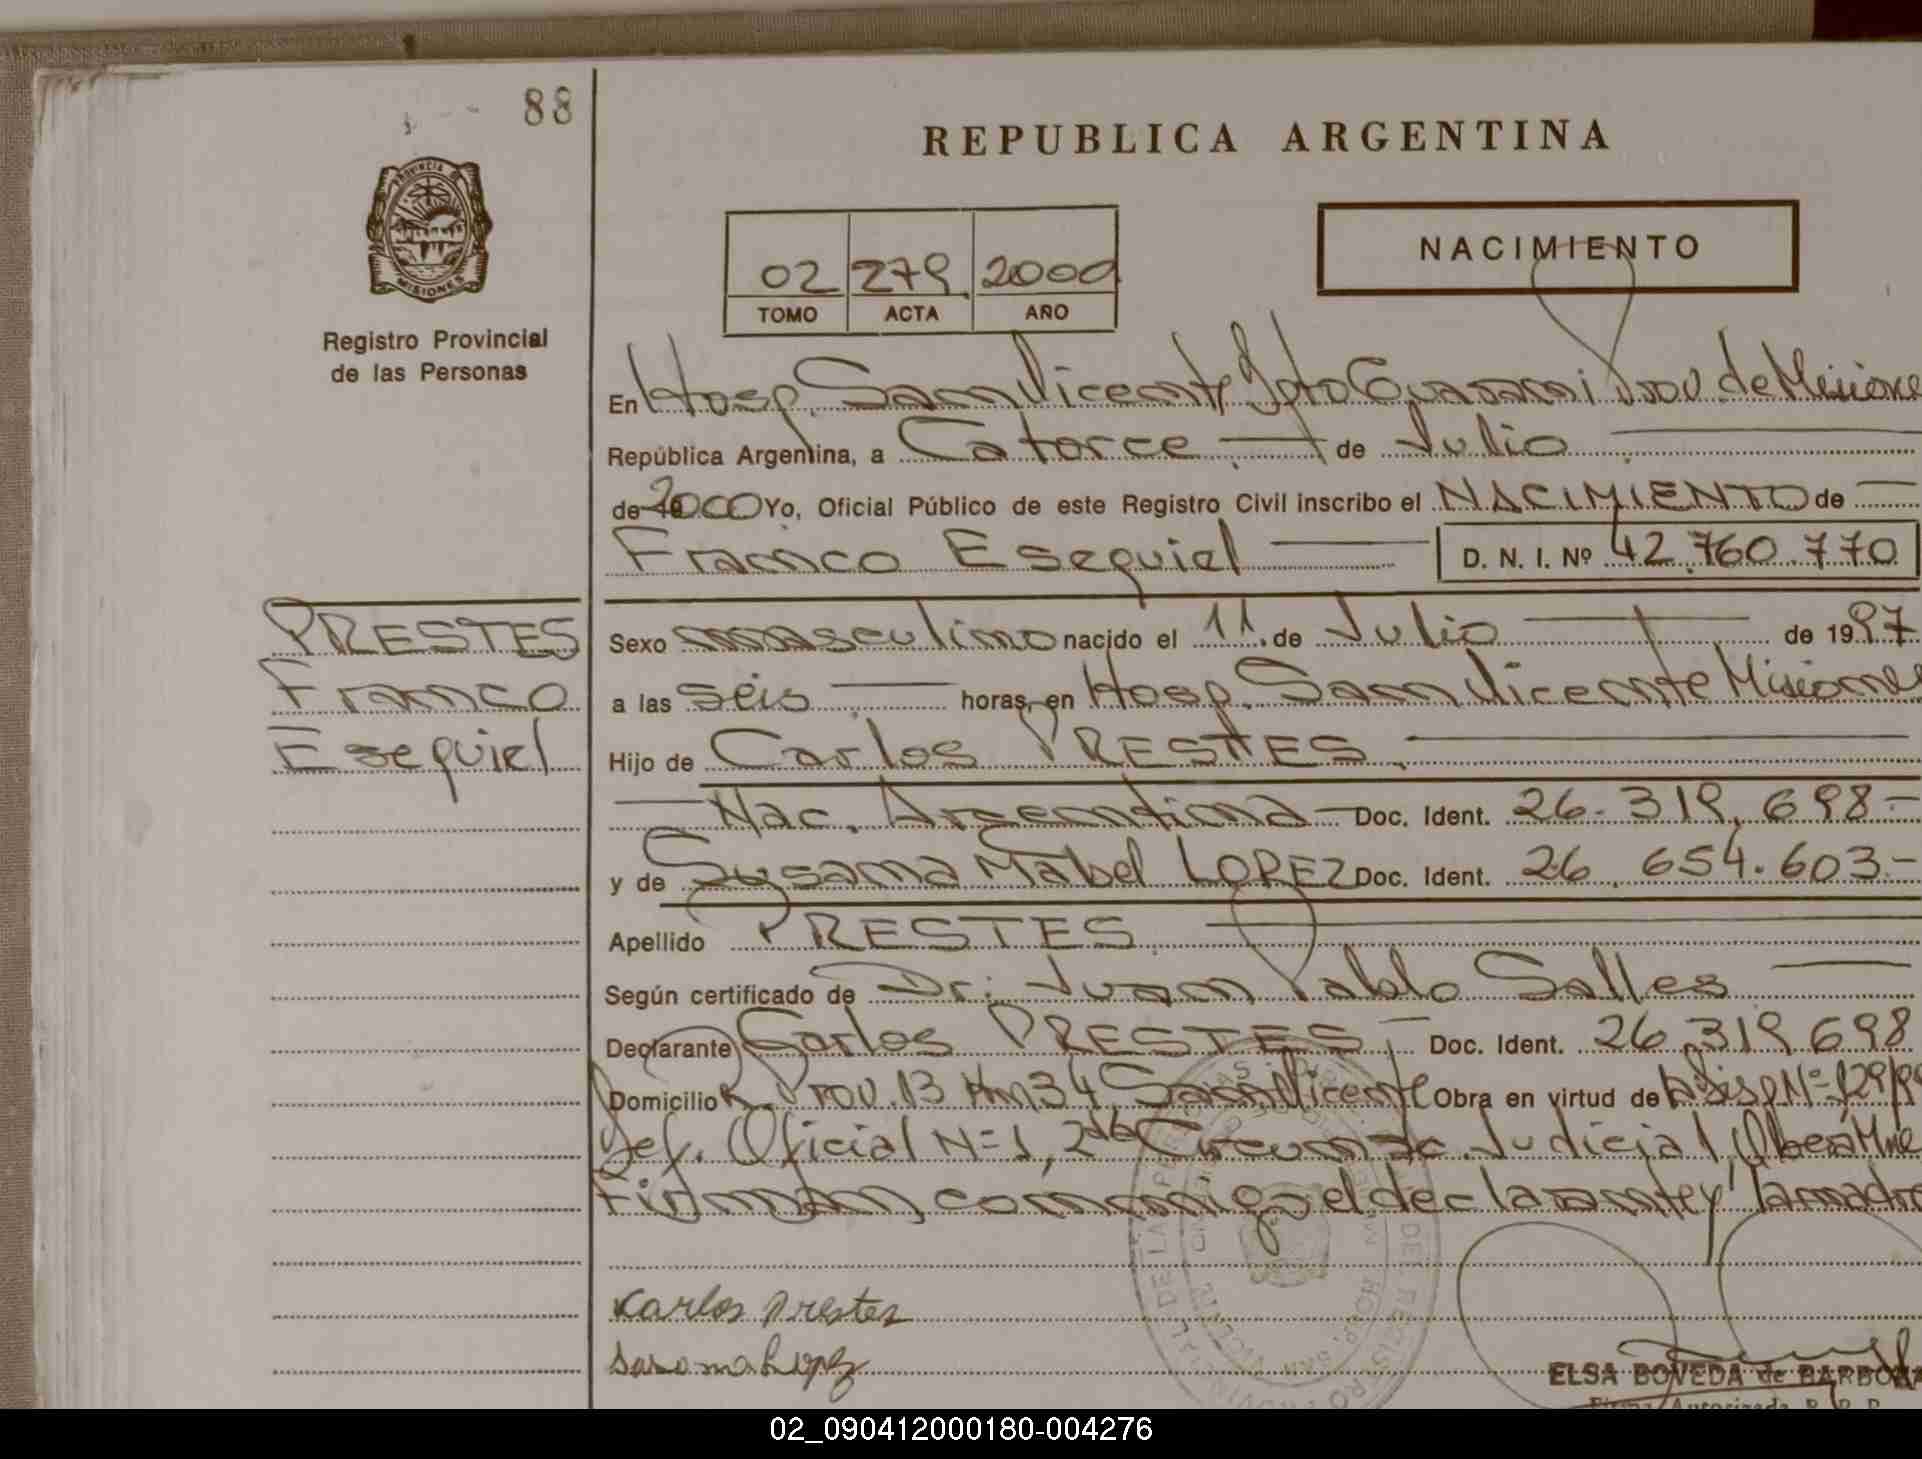 88
PROVINCIA DE
MISIONES
Registro Provincial
de las Personas
REPUBLICA ARGENTINA
NACIMIENTO
02 279 2000
TOMO ACTA AÑO
En Hosp. San Vicente Dpto Guarani Prov. de Misiones
República Argentina, a Catorce de Julio
de 2000 Yo, Oficial Público de este Registro Civil inscribo el NACIMIENTO de
Franco Esequiel D. N. I. Nº 42.760.770
PRESTES
Franco
Esequiel
Sexo masculino nacido el 11 de Julio de 1997
a las seis horas, en Hosp. San Vicente Misiones
Hijo de Carlos PRESTES
Nac. Argentina Doc. Ident. 26.319.698
y de Susana Mabel LOPEZ Doc. Ident. 26.654.603
Apellido PRESTES
Según certificado de Dr. Juan Pablo Salles
Declarante Carlos PRESTES Doc. Ident. 26.319.698
Domicilio R. Prov. 13 Km 34 San Vicente Obra en virtud de Nº 129/99
Def. Oficial Nº 1, 2da Circunsc. Judicial Oberá Mnes
Firman conmigo el declarante y la madre
Carlos Prestes
ELSA BOVEDA de BARBOZA
02_090412000180-004276